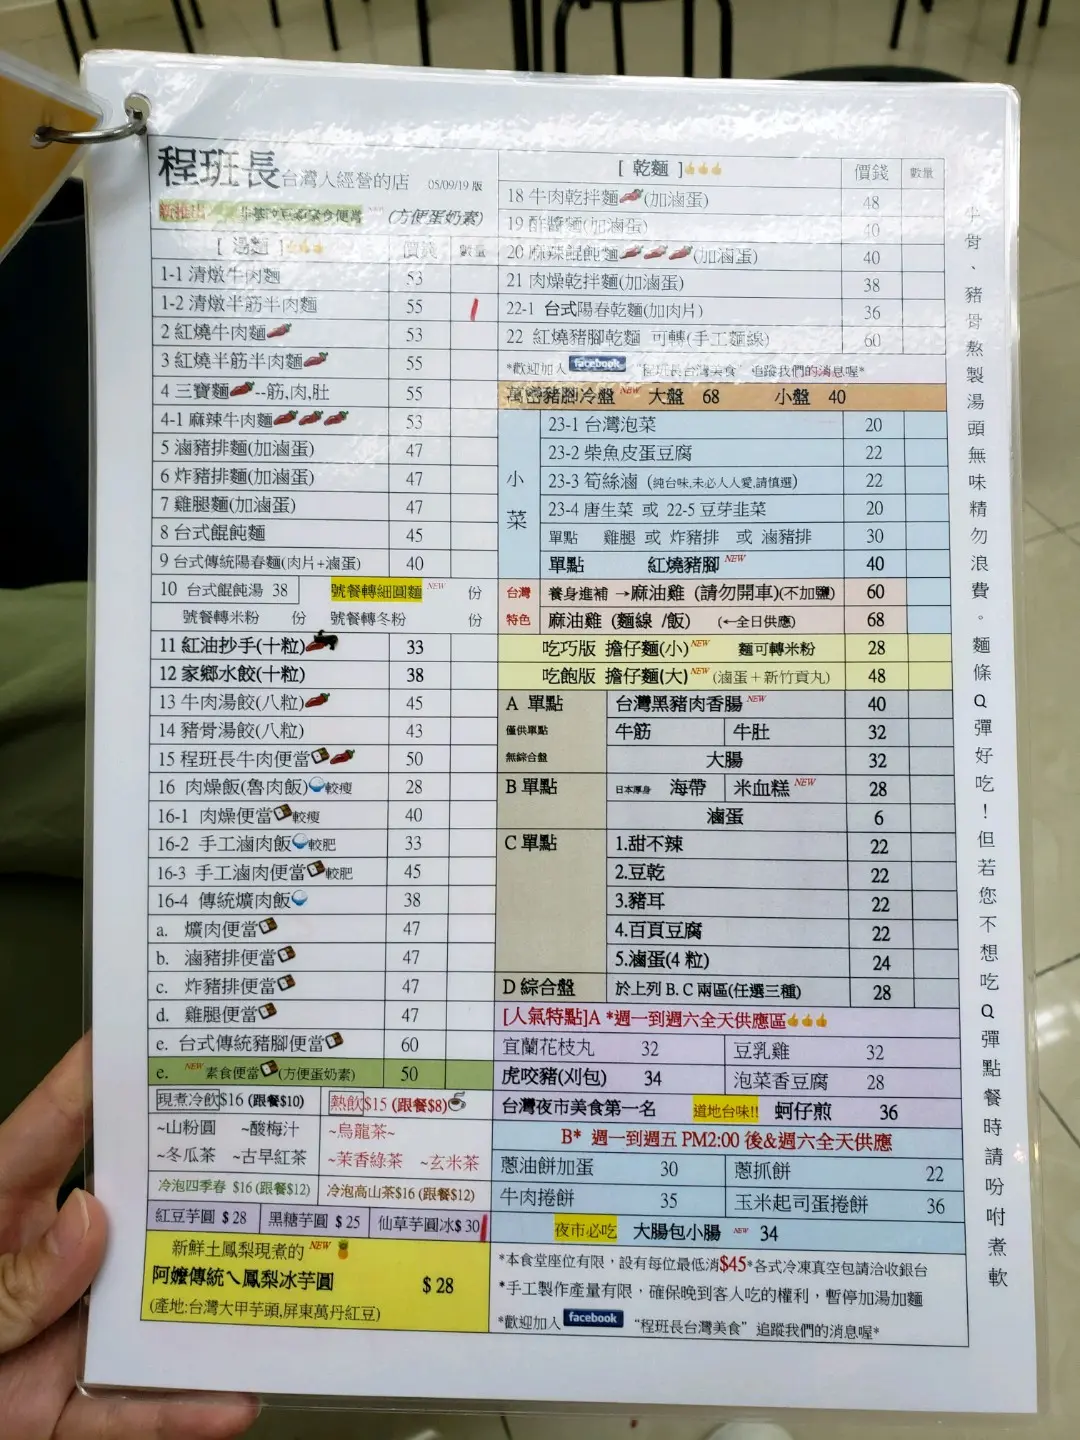 程班長台灣人經營的店 05/09/19 版
新推出 素食便當 NEW (方便蛋奶素)
[ 湯麵 ] 價錢 數量
1-1 清燉牛肉麵 53
1-2 清燉半筋半肉麵 55
2 紅燒牛肉麵 53
3 紅燒半筋半肉麵 55
4 三寶麵--筋,肉,肚 55
4-1 麻辣牛肉麵 53
5 滷豬排麵(加滷蛋) 47
6 炸豬排麵(加滷蛋) 47
7 雞腿麵(加滷蛋) 47
8 台式餛飩麵 45
9 台式傳統陽春麵(肉片+滷蛋) 40
10 台式餛飩湯 38 號餐轉細圓麵 NEW 份
號餐轉米粉 份 號餐轉冬粉 份
11 紅油抄手(十粒) 33
12 家鄉水餃(十粒) 38
13 牛肉湯餃(八粒) 45
14 豬骨湯餃(八粒) 43
15 程班長牛肉便當 50
16 肉燥飯(魯肉飯)較瘦 28
16-1 肉燥便當較瘦 40
16-2 手工滷肉飯較肥 33
16-3 手工滷肉便當較肥 45
16-4 傳統爌肉飯 38
a. 爌肉便當 47
b. 滷豬排便當 47
c. 炸豬排便當 47
d. 雞腿便當 47
e. 台式傳統豬腳便當 60
e. NEW 素食便當(方便蛋奶素) 50
現煮冷飲$16 (跟餐$10) 熱飲$15 (跟餐$8)
~山粉圓 ~酸梅汁 ~烏龍茶~
~冬瓜茶 ~古早紅茶 ~茉香綠茶 ~玄米茶
冷泡四季春 $16 (跟餐$12) 冷泡高山茶$16 (跟餐$12)
紅豆芋圓 $28 黑糖芋圓 $25 仙草芋圓冰$30
新鮮土鳳梨現煮的 NEW
阿嬤傳統ㄟ鳳梨冰芋圓 $28
(產地:台灣大甲芋頭,屏東萬丹紅豆)
[ 乾麵 ] 價錢 數量
18 牛肉乾拌麵(加滷蛋) 48
19 酢醬麵(加滷蛋) 40
20 麻辣餛飩麵(加滷蛋) 40
21 肉燥乾拌麵(加滷蛋) 38
22-1 台式陽春乾麵(加肉片) 36
22 紅燒豬腳乾麵 可轉(手工麵線) 60
*歡迎加入 facebook "程班長台灣美食" 追蹤我們的消息喔*
萬巒豬腳冷盤 NEW 大盤 68 小盤 40
小菜
23-1 台灣泡菜 20
23-2 柴魚皮蛋豆腐 22
23-3 筍絲滷 (純台味,未必人人愛,請慎選) 22
23-4 唐生菜 或 22-5 豆芽韭菜 20
單點 雞腿 或 炸豬排 或 滷豬排 30
單點 紅燒豬腳 NEW 40
台灣 養身進補 →麻油雞 (請勿開車)(不加鹽) 60
特色 麻油雞 (麵線 /飯) (←全日供應) 68
吃巧版 擔仔麵(小) NEW 麵可轉米粉 28
吃飽版 擔仔麵(大) NEW (滷蛋+新竹貢丸) 48
A 單點 台灣黑豬肉香腸 NEW 40
僅供單點 牛筋 牛肚 32
無綜合盤 大腸 32
B 單點 日本厚身 海帶 米血糕 NEW 28
滷蛋 6
C 單點 1.甜不辣 22
2.豆乾 22
3.豬耳 22
4.百頁豆腐 22
5.滷蛋(4 粒) 24
D 綜合盤 於上列 B. C 兩區(任選三種) 28
[人氣特點]A *週一到週六全天供應區
宜蘭花枝丸 32 豆乳雞 32
虎咬豬(刈包) 34 泡菜香豆腐 28
台灣夜市美食第一名 道地台味!! 蚵仔煎 36
B* 週一到週五 PM2:00 後&週六全天供應
蔥油餅加蛋 30 蔥抓餅 22
牛肉捲餅 35 玉米起司蛋捲餅 36
夜市必吃 大腸包小腸 NEW 34
*本食堂座位有限，設有每位最低消$45*各式冷凍真空包請洽收銀台
*手工製作產量有限，確保晚到客人吃的權利，暫停加湯加麵
*歡迎加入 facebook "程班長台灣美食" 追蹤我們的消息喔*
牛骨、豬骨熬製湯頭無味精勿浪費。麵條Q彈好吃！但若您不想吃Q彈點餐時請吩咐煮軟